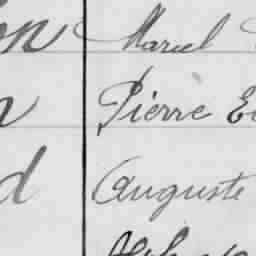 on Marcel
Pierre E
d Auguste